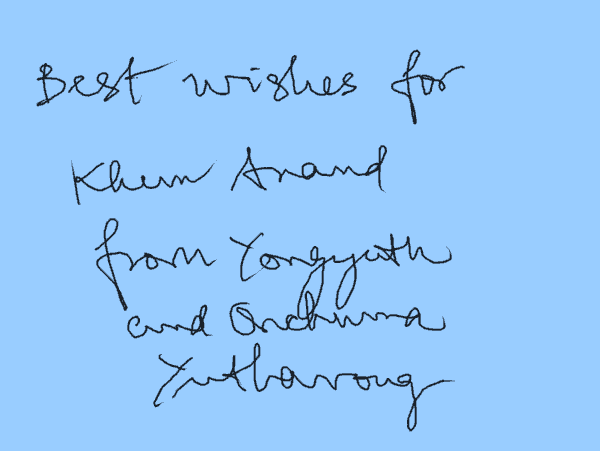 Best wishes for
Khun Anand
from Yongyuth
and Onchuma
Yuthavong